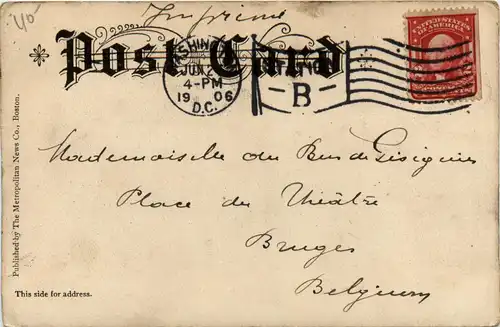 40-
Imprimé
Post Card
WASHIN
JUN 2
4-PM
1906
D.C.
B
UNITED STATES
OF AMERICA
Mademoiselle
Place du Théâtre
Bruges
Belgium
Published by The Metropolitan News Co., Boston.
This side for address.